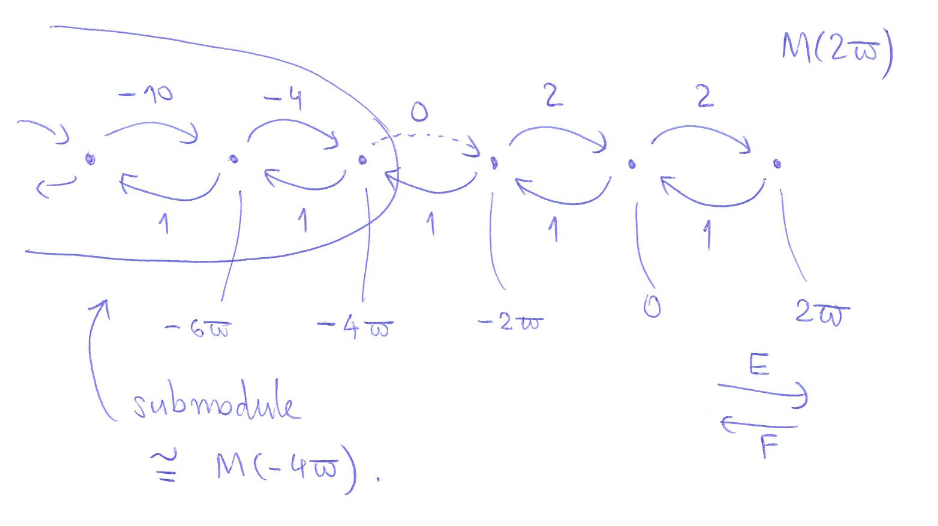 M(2ϖ)
-10 -4 0 2 2
1 1 1 1 1
-6ϖ -4ϖ -2ϖ 0 2ϖ
E
F
submodule
≅ M(-4ϖ).